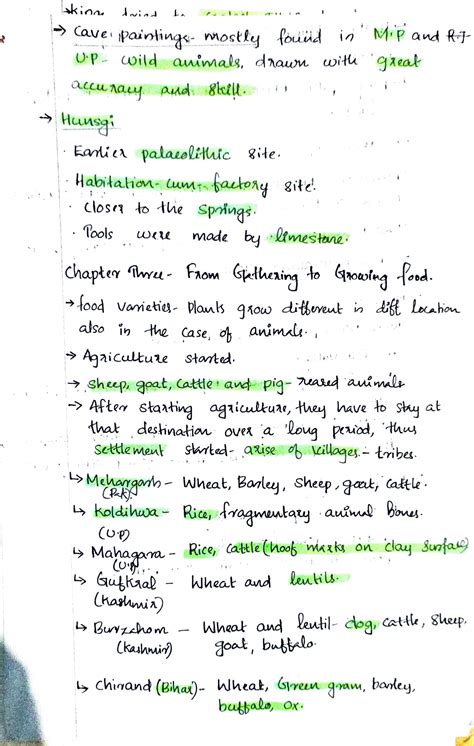 → Cave paintings- mostly found in M.P and RJ
U.P- wild animals, drawn with great
accuracy and skill.
→ Hunsgi
· Earlier palaeolithic site.
· Habitation-cum-factory site.
· Closer to the springs.
· Tools were made by limestone.
Chapter Three- From Gathering to Growing food.
→ food varieties- Plants grow different in diff location
also in the case of animals.
→ Agriculture started.
→ sheep, goat, cattle and pig- reared animals
→ After starting agriculture, they have to stay at
that destination over a long period, thus
settlement started- arise of villages- tribes.
↳ Mehargarh - Wheat, Barley, sheep, goat, cattle.
(Pak)
↳ Koldihwa - Rice, fragmentary animal bones.
(U.P)
↳ Mahagara - Rice, cattle (hoof marks on clay surface)
(U.P)
↳ Gufkral - Wheat and lentils.
(Kashmir)
↳ Burzahom - Wheat and lentil- dog, cattle, sheep,
(Kashmir) goat, buffalo.
↳ Chirand (Bihar)- Wheat, Green gram, barley,
buffalo, ox.